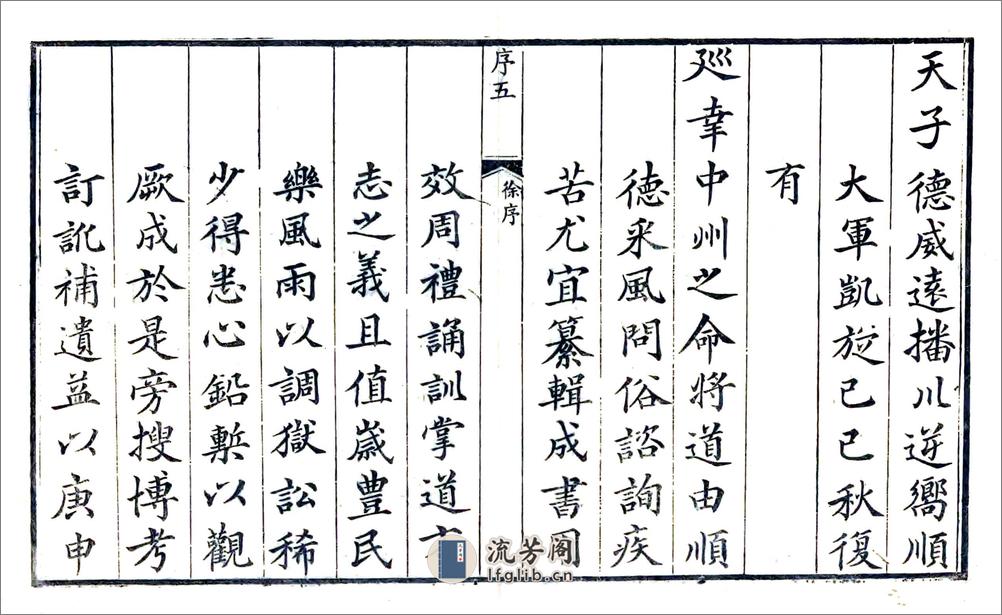 天子德威遠播川逆嚮順
大軍凱旋己巳秋復
有
廵幸中州之命將道由順
德采風問俗諮詢疾
苦尤宜纂輯成書
序五
徐序
效周禮誦訓掌道
志之義且值歲豊民
樂風雨以調獄訟稀
少得悉心鉛槧以觀
厥成於是旁搜博考
訂訛補遺益以庚申
流芳阁
lfglib.cn